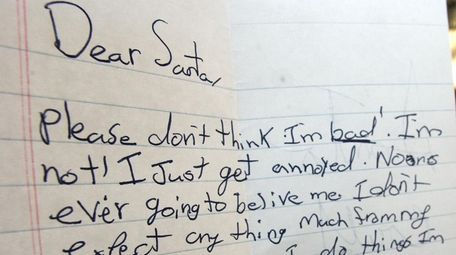 Dear Santa,
please don't think Im bad'. I'm
not! I Just get annoyed. Noons
ever going to belive me I don't
expect any thing much frammy
I do things Im